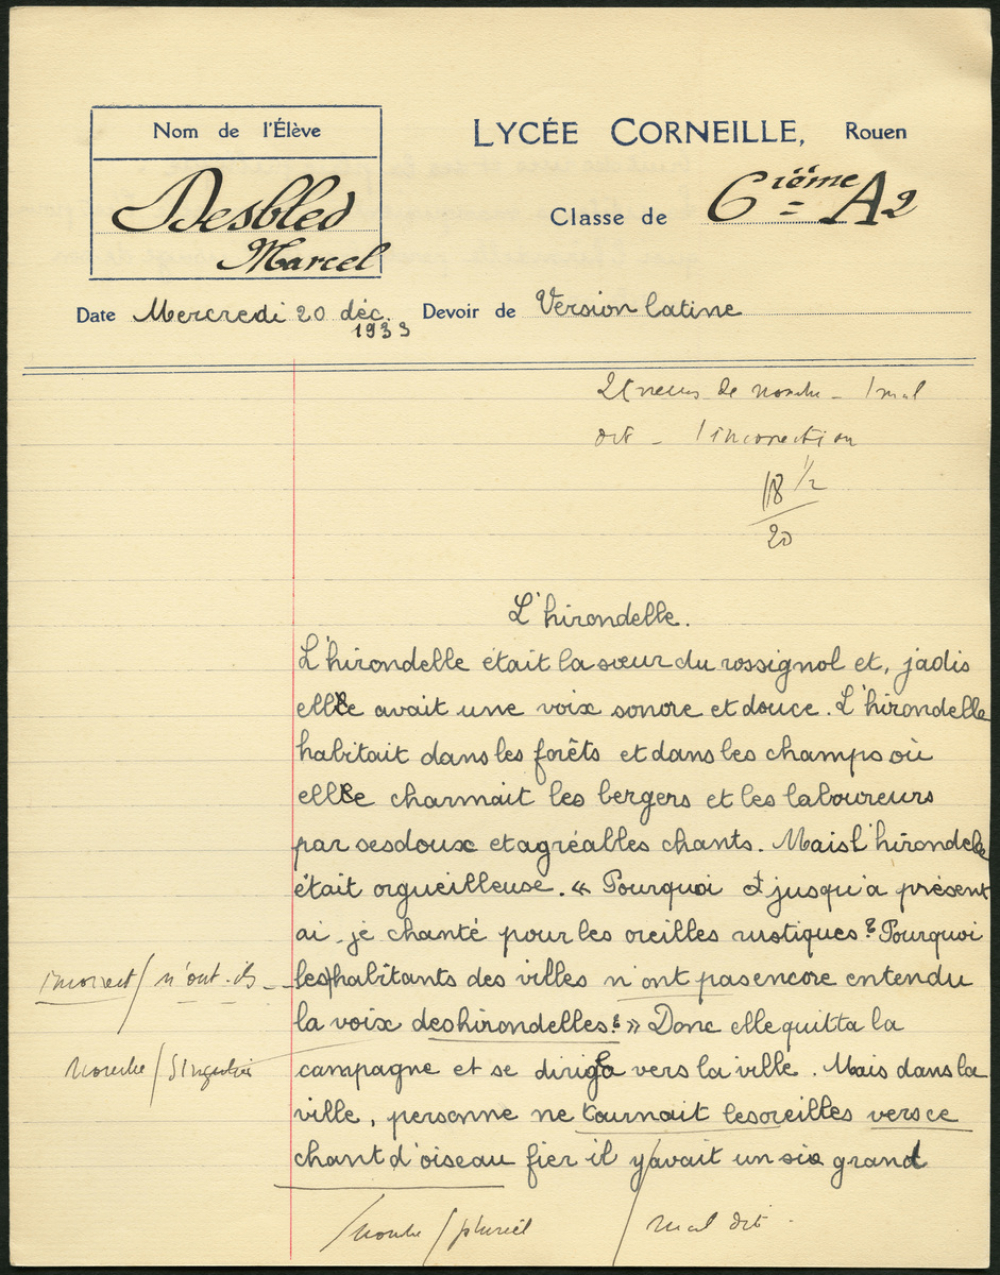 Nom de l'Élève
LYCÉE CORNEILLE, Rouen
Desbled
Marcel
Classe de 6ième A2
Date Mercredi 20 déc. 1933 Devoir de Version latine
2 erreurs de nombre - 1 mal
dit - 1 incorrection
18 1/2
20
L'hirondelle.
L'hirondelle était la sœur du rossignol et, jadis
elle avait une voix sonore et douce. L'hirondelle
habitait dans les forêts et dans les champs où
elle charmait les bergers et les laboureurs
par ses doux et agréables chants. Mais l'hirondelle
était orgueilleuse. « Pourquoi jusqu'à présent
ai-je chanté pour les oreilles rustiques? Pourquoi
incorrect / n'ont-ils
les habitants des villes n'ont pas encore entendu
la voix des hirondelles? » Donc elle quitta la
nombre / singulier
campagne et se dirigea vers la ville. Mais dans la
ville, personne ne tournait les oreilles vers ce
chant d'oiseau fier il y avait un si grand
/ nombre / pluriel / mal dit.